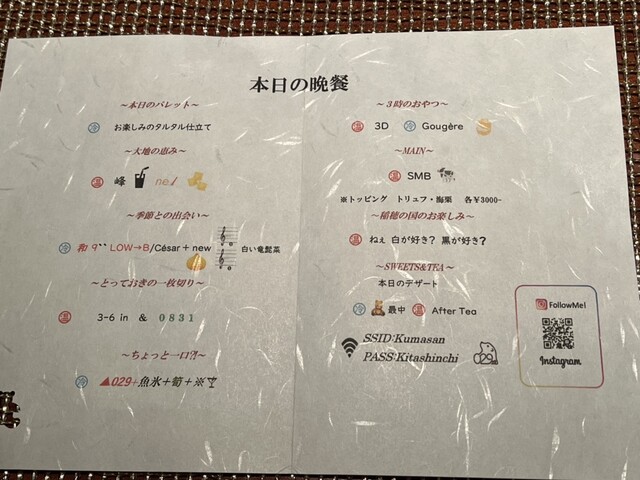 本日の晩餐
～本日のパレット～
冷 お楽しみのタルタル仕立て
～大地の恵み～
温 峰 ne/
～季節との出会い～
冷 和 9`` LOW→B/César + new 白い竜髭菜
～とっておきの一枚切り～
温 3-6 in & 0831
～ちょっと一口⁈～
冷 ▲029+魚氷+筍+※
～３時のおやつ～
温 3D 冷 Gougère
～MAIN～
温 SMB
※トッピング トリュフ・海栗 各￥3000-
～稲穂の国のお楽しみ～
温 ねぇ 白が好き? 黒が好き?
～SWEETS&TEA～
本日のデザート
冷 最中 温 After Tea
SSID:Kumasan
PASS:Kitashinchi
FollowMe!
Instagram